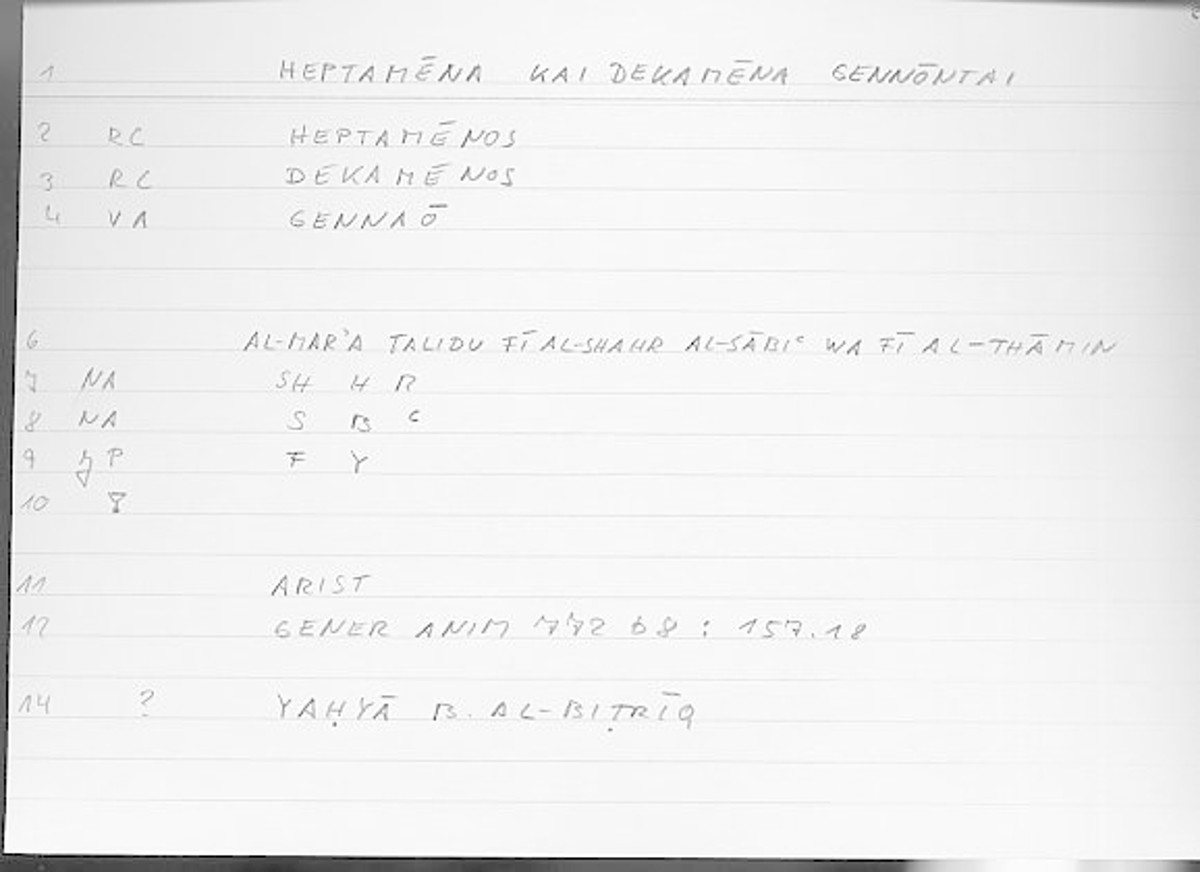 1 HEPTAMĒNA KAI DEKAMĒNA GENNŌNTAI
2 RC HEPTAMĒNOS
3 RC DEKAMĒNOS
4 VA GENNAŌ
6 AL-MARʾA TALIDU FĪ AL-SHAHR AL-SĀBIʿ WA FĪ AL-THĀMIN
7 NA SH H R
8 NA S B ʿ
9 P F Y
10
11 ARIST
12 GENER ANIM 772 b8 : 157.18
14 ? YAḤYĀ B. AL-BIṬRĪQ